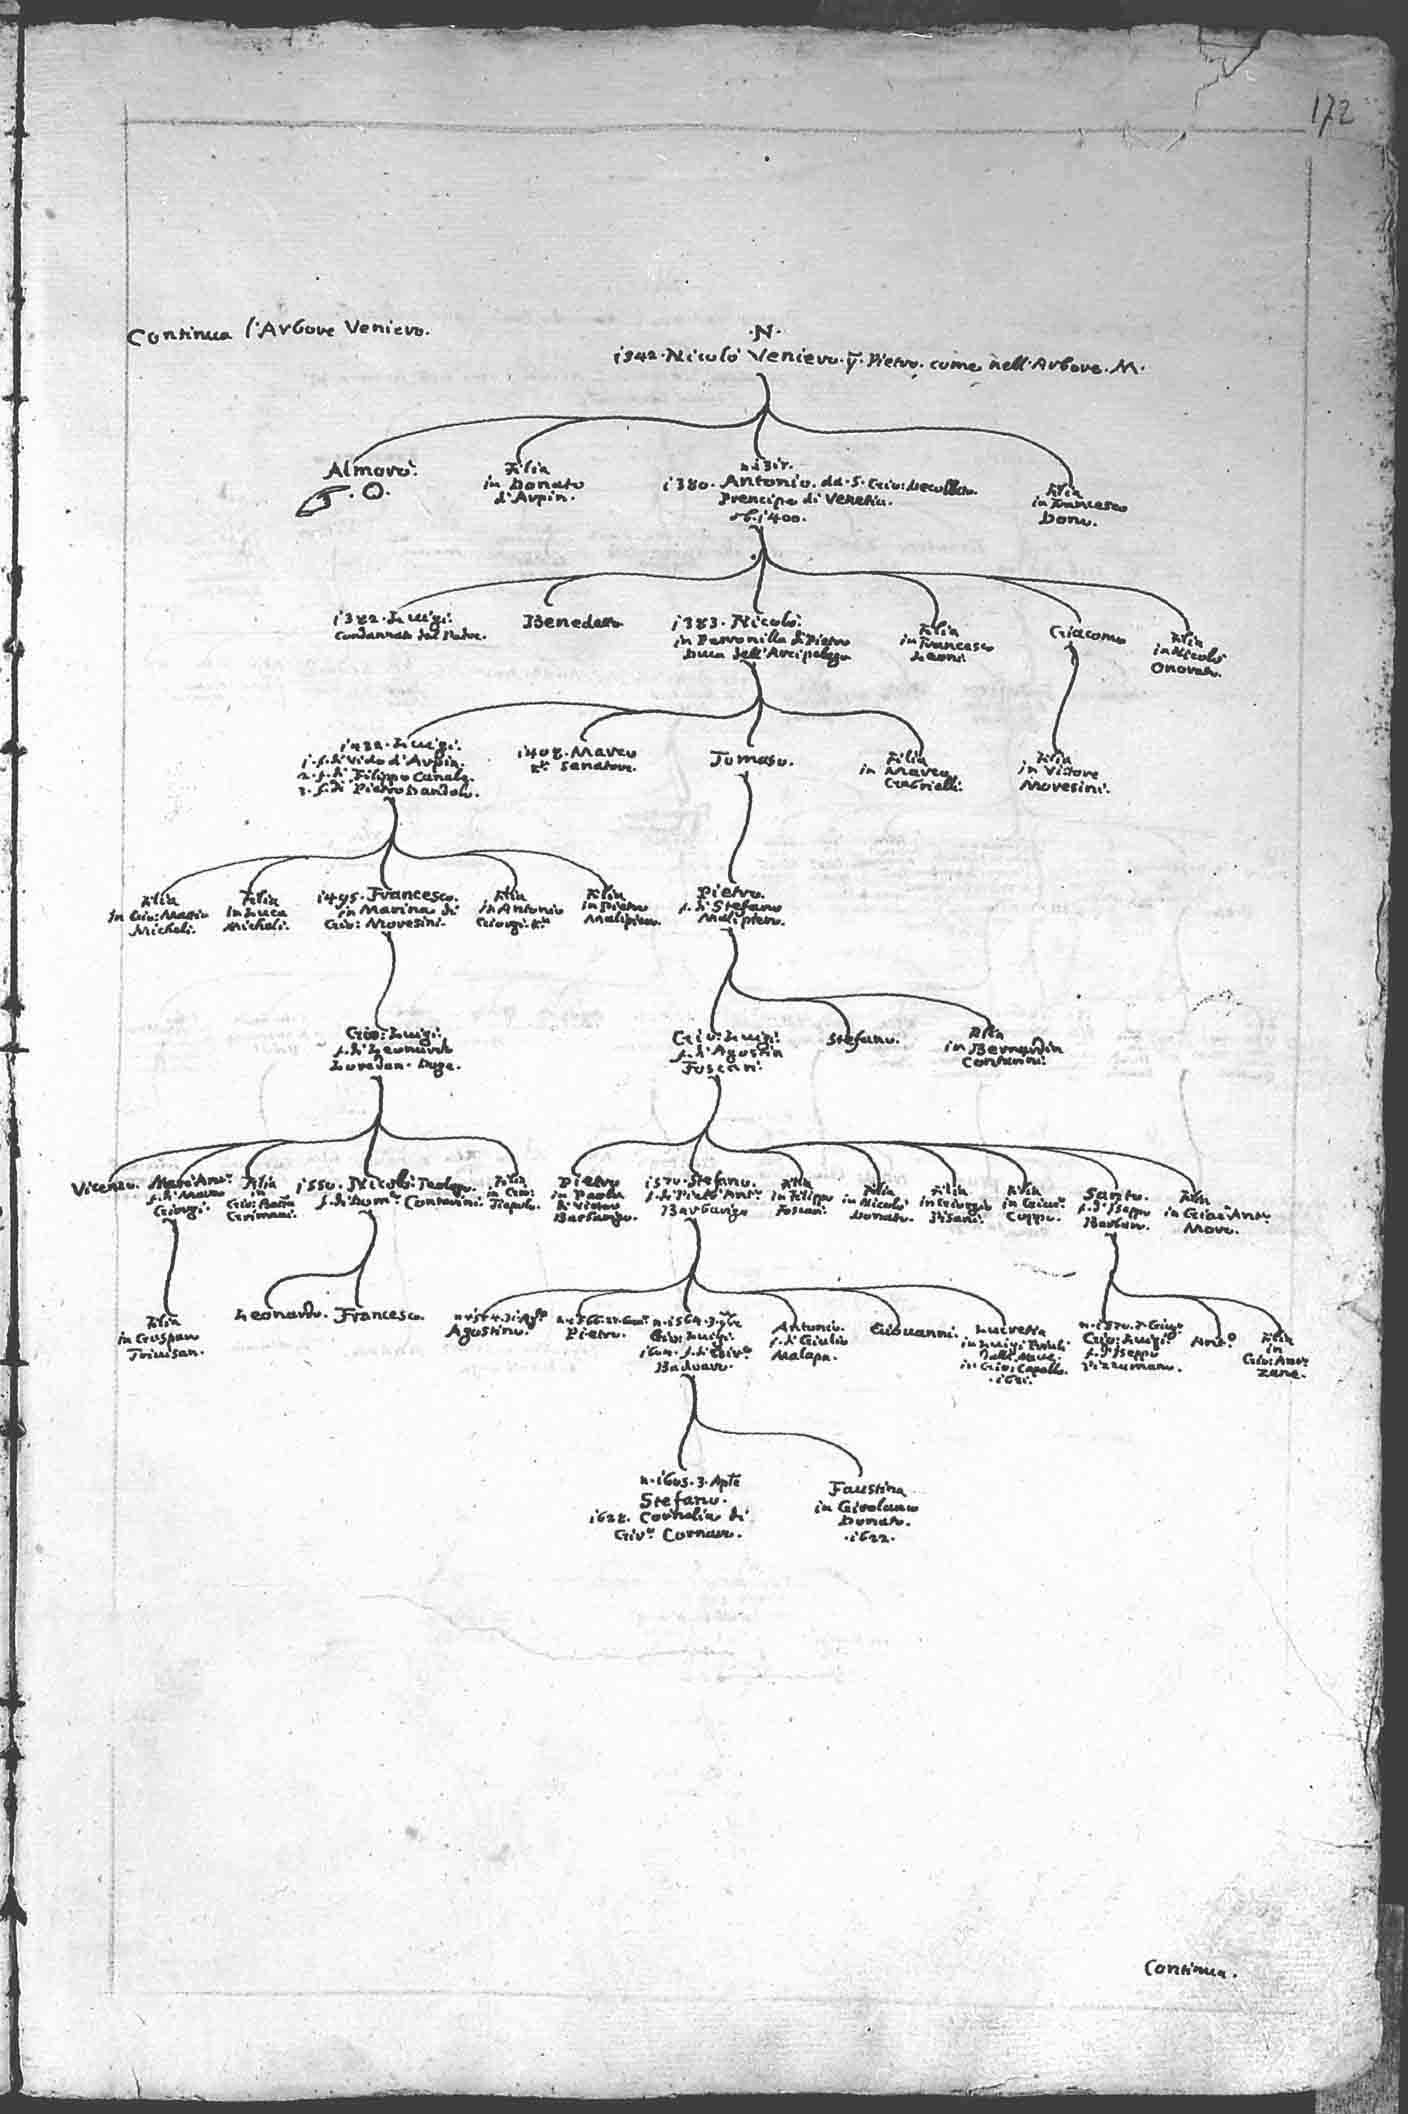 172
Continua l'Arbore Veniero.
.N.
1342. Nicolò Veniero q. Pietro. come nell'Arbore. M.
Almorò.
O.
Filia
in Donato
d'Arpin.
1380. Antonio. da S. Gio: Decollato.
Prencipe di Venetia.
ob. 1400.
Filia
in Francesco
Dono.
1382. Luigi.
Condannato dal Padre.
Benedetto
1383. Nicolò.
in Petronilla di Pietro
Duca dell'Arcipelago
Filia
in Francesco
Leoni
Giacomo
Filia
in Nicolò
1422. Luigi.
1. f. di Vido d'Arpin.
2. f. di Filippo Canale.
3. f. di Pietro Dandolo.
1408. Marco
Kr. Senatore.
Tomaso.
Filia
in Marco
Gabrielli.
Filia
in Vittore
Moresini.
Filia
in Gio: Maria
Micheli.
Filia
in Luca
Micheli.
1495. Francesco.
in Marina di
Gio: Moresini.
Filia
in Antonio
Giorgi Kr.
Filia
in Pietro
Malipiero.
Pietro.
f. di Stefano
Malipiero.
Gio: Luigi.
f. di Leonardo
Loredan. Doge.
Gio: Luigi.
f. di Agostin
Foscari.
Stefano.
Filia
in Bernardin
Contarini.
Vicenzo.
Marc'Ant.o
f. di Marco
Giorgi.
Filia
in
Gio: Batta
Grimani.
1550. Nicolò: Teologo.
f. di Dom.co Contarini.
Filia
in Gio:
Tiepolo.
Pietro
in Paola
di Vettor
Barbarigo.
1570. Stefano.
f. di Pietro Ant.o
Barbarigo
Filia
in Filippo
Foscari.
Filia
in Nicolò
Donato.
Filia
in Giorgio
Pisani.
Filia
in Giac.o
Coppo.
Santo.
f. di Iseppo
Barbaro.
Filia
in Giac.o Ant.o
Moro.
Filia
in Gaspar
Trivisan.
Leonardo.
Francesco.
Agostino.
Pietro.
Gio: Luigi.
Badoaro.
Antonio.
f. di Giulio
Malapa.
Giovanni.
Lucretia
in Gio: Capello.
.1621.
Gio: Luigi.
f. di Iseppo
Pizzamano.
Ant.o
Filia
in
Gio: Ant.o
Zane.
n. 1605. 3. Aple
Stefano.
1628. Cornelia di
Gir.o Cornaro.
Faustina
in Girolamo
Donato.
.1622.
Continua.